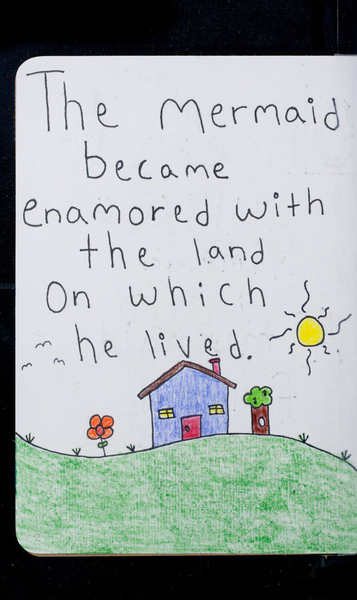 The mermaid
became
enamored with
the land
On which
he lived.